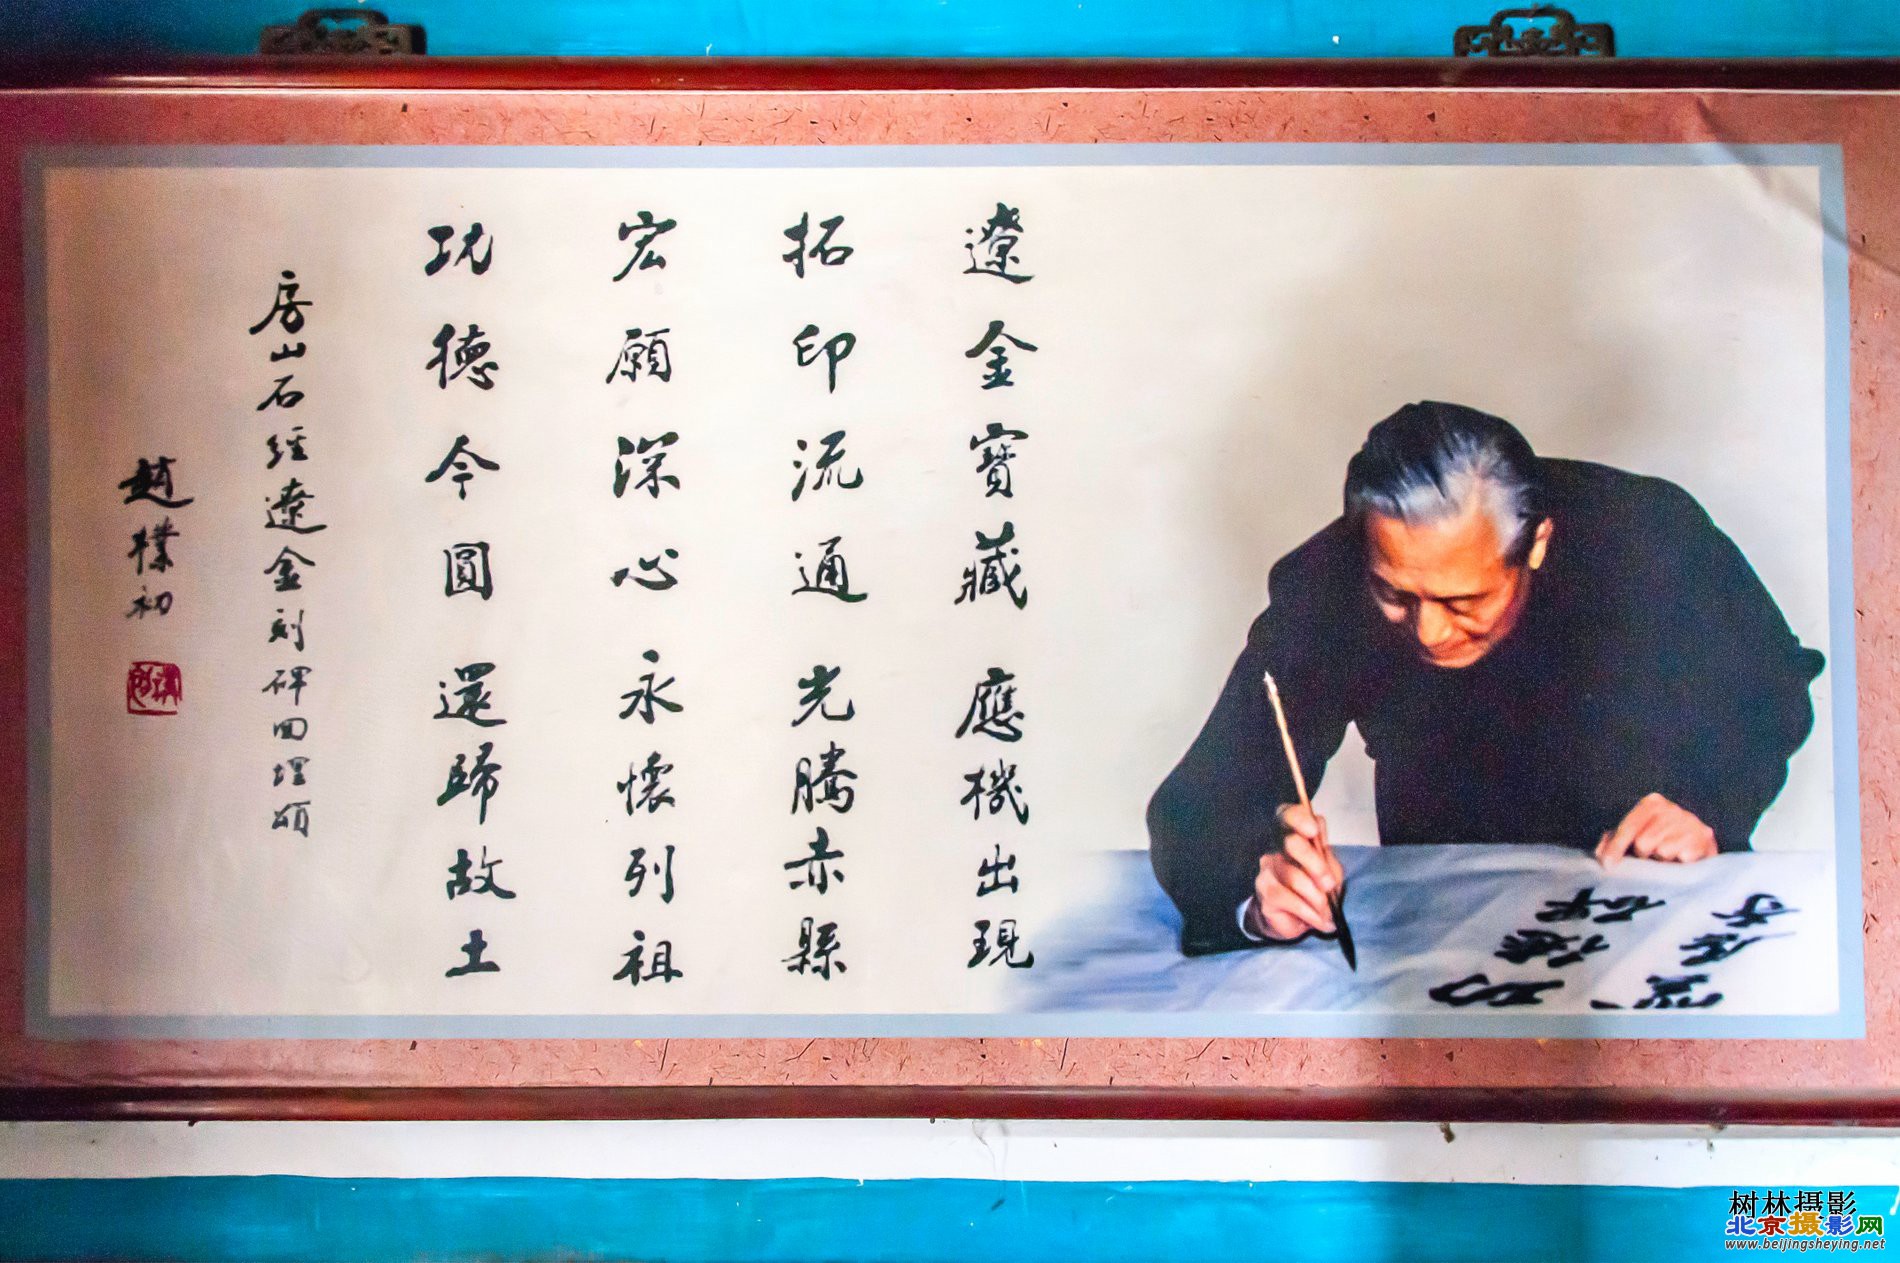 遼金寶藏 應機出現
拓印流通 光騰赤縣
宏願深心 永懷列祖
功德今圓 還歸故土
房山石經遼金刻碑回埋頌
趙樸初
功德碑
树林摄影
北京摄影网
www.beijingsheying.net